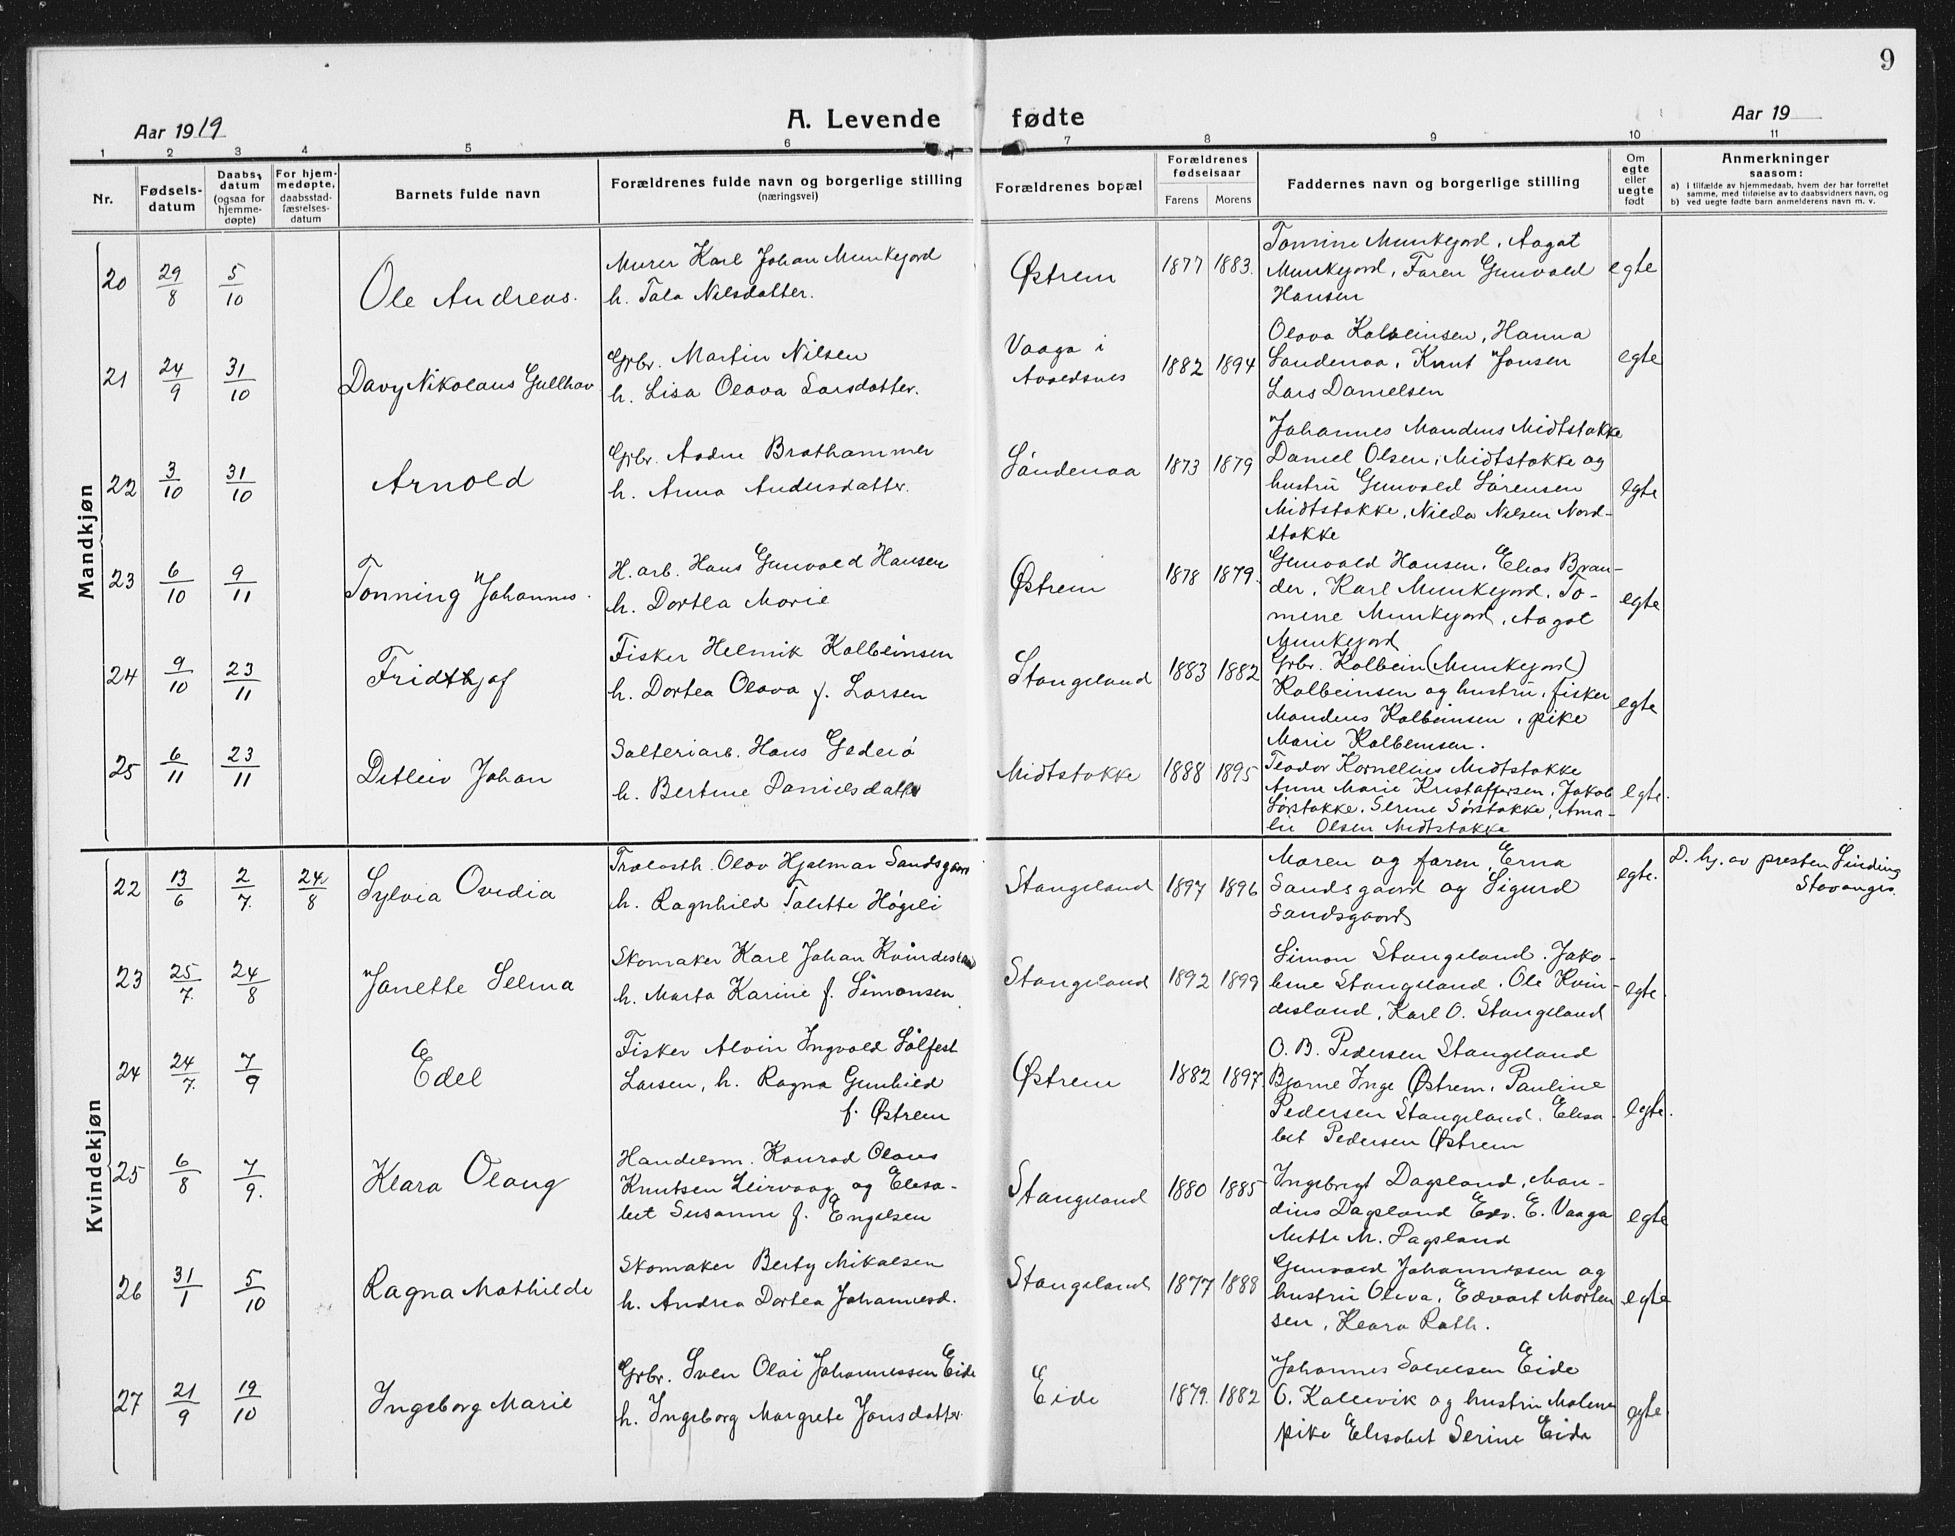 9
Aar 1919
A. Levende fødte
Aar 19
1 2 3 4 5 6 7 8 9 10 11
Nr.
Fødsels-
datum
Daabs-
datum
(ogsaa for
hjemme-
døpte)
For hjem-
medøpte,
daabsstad-
fæstelses-
datum
Barnets fulde navn
Forældrenes fulde navn og borgerlige stilling
(næringsvei)
Forældrenes bopæl
Forældrenes
fødselsaar
Farens Morens
Faddernes navn og borgerlige stilling
Om
egte
eller
uegte
født
Anmerkninger
saasom:
a) i tilfælde av hjemmedaab, hvem der har forrettet
samme, med tilføielse av to daabsvidners navn, og
b) ved uegte fødte barn anmelderens navn m. v.
Mandkjøn
20 29/8 5/10 Ole Andreas.
Murer Karl Johan Munkejord
h. Tala Nilsdatter.
Østrem 1877 1883.
Tomine Munkejord, Aagot
Munkejord, Faren Gunvald
Hansen
egte
21 24/9 31/10 Davy Nikolaus Gullhav
Grbr. Martin Nilsen
h. Lisa Olava Larsdatter.
Vaaga i
Avaldsnes
1882 1894
Olava Kolbeinsen, Hanna
Sandenaa, Knut Jonsen
Lars Danielsen
egte
22 3/10 31/10 Arnold
Grbr. Aadne Brathammer
h. Anna Andersdatter.
Sandenaa 1873 1879
Johannes Mandius Midtstokke
Daniel Olsen, Midtstokke og
hustru Gunvald Sørensen
Midtstokke, Nilda Nilsen Nord-
stokke
egte
23 6/10 9/11 Tonning Johannes.
H. arb. Hans Gunvald Hansen
h. Dortea Marie
Østrem 1878 1879.
Gunvald Hansen, Elias Bran-
der, Karl Munkejord, To-
mine Munkejord, Aagot
Munkejord
egte
24 9/10 23/11 Fridthjof
Fisker Helmik Kolbeinsen
h. Dortea Olava f. Larsen
Stangeland 1883 1882
Grbr. Kolbein (Munkejord)
Kolbeinsen og hustru, fisker
Mandius Kolbeinsen, pike
Marie Kolbeinsen.
egte
25 6/11 23/11 Detleiv Johan
Salteriarb. Hans Gederø
h. Bertine Danielsdatter
Midtstokke 1888 1895
Teodor Kornelius Midtstokke
Anne Marie Kristaffersen, Jakob
Sørstokke, Serine Sørstokke, Ama-
lie Olsen Midtstokke
egte.
Kvindekjøn
22 13/6 2/7. 24/8 Sylvia Ovidia
Trælasth. Olav Hjalmar Sandsgaard
h. Ragnhild Talette Høgeli
Stangeland 1897 1896
Moren og faren, Erna
Sandsgaard og Sigurd
Sandsgaard
egte.
D. hj. av presten Sinding
Stavanger.
23 25/7. 24/8 Janette Selma
Skomaker Karl Johan Kvindesland
h. Marta Karine f. Simonsen.
Stangeland 1892 1899
Simon Stangeland, Jako-
bine Stangeland, Ole Kvin-
desland, Karl O. Stangeland
egte.
24 24/7. 7/9 Edel
Fisker Alvin Ingvald Sølfest
Larsen, h. Ragna Gunhild
f. Østrem
Østrem 1882 1897.
O. B. Pedersen Stangeland
Bjarne Inge Østrem, Pauline
Pedersen Stangeland, Elisa-
bet Pedersen Østrem
egte.
25 6/8 7/9. Klara Olaug
Handelsm. Konrad Olaus
Knutsen Leirvaag og Elisa-
bet Susanne f. Engelsen
Stangeland 1880 1885
Ingebrigt Dagsland, Man-
dius Dagsland Edv. E. Vaaga
Mette M. Dagsland
egte
26 31/1 5/10 Ragna Mathilde
Skomaker Berty Mikalsen
h. Andrea Dortea Johannesd.
Stangeland 1877 1888
Gunvald Johannessen og
hustru Oliva, Edvart Morten-
sen, Klara Rath.
egte
27 21/9 19/10 Ingeborg Marie
Grbr. Sven Olai Johannessen Eide
h. Ingeborg Margrete Jonsdatter.
Eide 1879. 1882
Johannes Salvesen Eide
O. Kallevik og hustru Malene
pike Elisabet Serine Eide
egte.